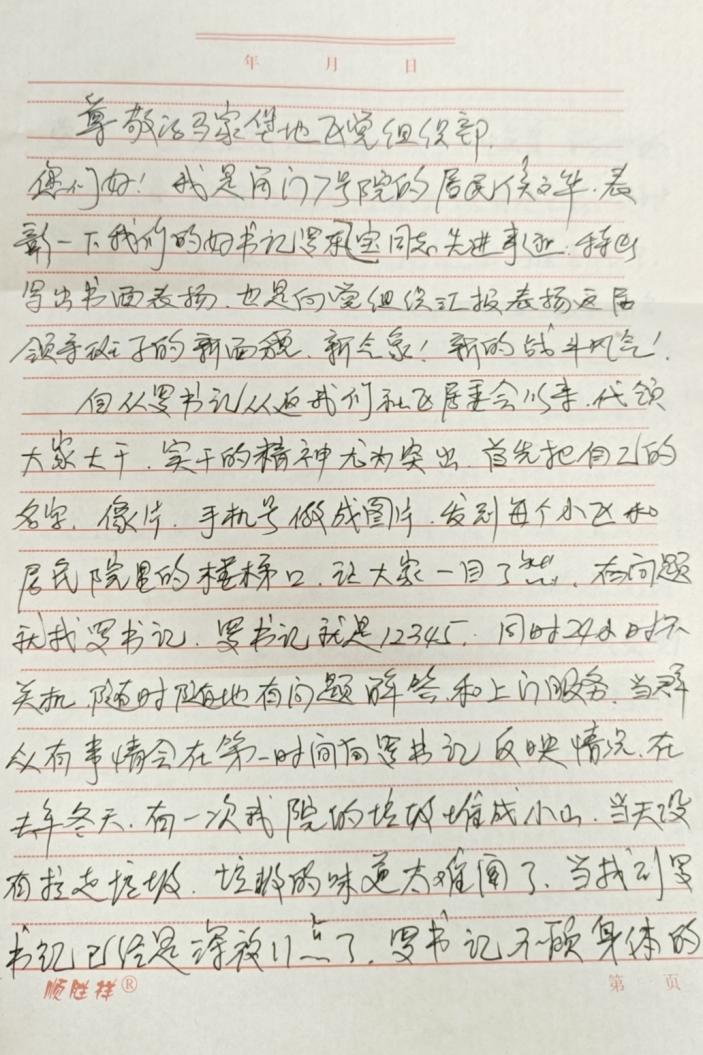 年 月 日
尊敬的马家堡地区党组织部.
您们好！我是角门7号院的居民侯 华.表
彰一下我们的好书记罗 宝同志先进事迹.特此
写出书面表扬.也是向党组织汇报表扬这届
领导班子的新面貌、新气象！新的战斗风气！
自从罗书记从返我们社区居委会以来.代领
大家大干.实干的精神尤为突出.首先把自己的
名字.像片.手机号做成图片.发到每个小区和
居民院里的楼梯口.让大家一目了然.有问题
就找罗书记.罗书记就是12345.同时24小时不
关机.随时随地有问题解答.和上门服务.当群
众有事情会在第一时间向罗书记反映情况.在
去年冬天.有一次我院的垃圾堆成小山.当天没
有拉走垃圾.垃圾的味道太难闻了.当找到罗
书记已经是深夜11点了.罗书记不顾身体的
顺胜祥® 第 页